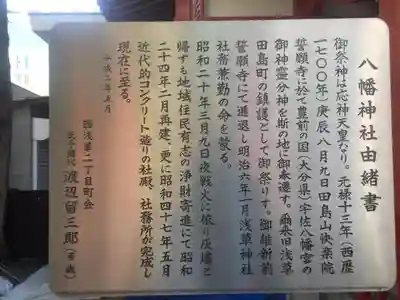 八幡神社由緒書
御祭神は応神天皇なり。元禄十三年(西暦
一七〇〇年)庚辰八月九日田島山快楽院
誓願寺に於て豊前の国(大分県)宇佐八幡宮の
御神霊分神を斯の地に御奉遷す。爾来田浅草
田島町の鎮護として御祭りす。御維新前
誓願寺にて進退し明治六年一月浅草神社
社斎兼勤の命を蒙る。
昭和二十年三月九日夜戦火に依り灰燼と
帰すも地域住民有志の浄財寄進にて昭和
二十四年二月再建、更に昭和四十七年五月
近代的コンクリート造りの社殿、社務所が完成し
現在に至る。
平成二年五月
西浅草二丁目町会
氏子総代 渡辺留三郎